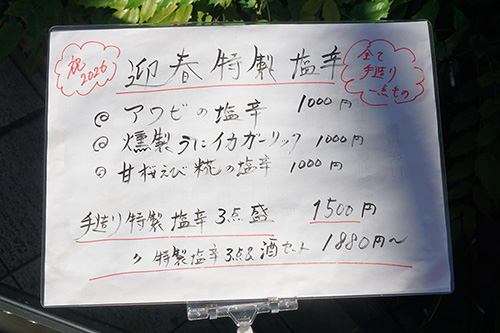 祝
2026
迎春特製塩辛
全て
手造り
一点もの
◎ アワビの塩辛 1000円
◎ 燻製うにイカガーリック 1000円
◎ 甘桜えび糀の塩辛 1000円
手造り特製塩辛3点盛 1500円
〃 特製塩辛3点&酒セット 1880円~